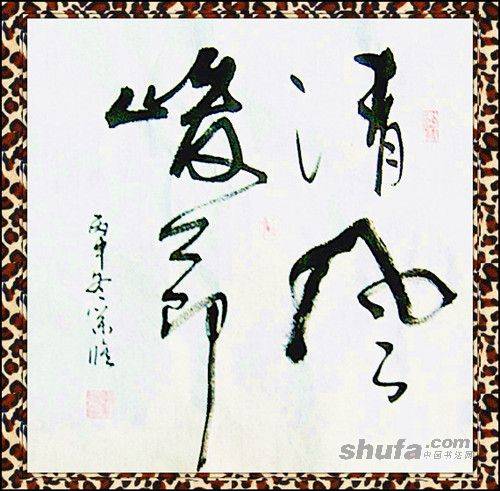 清風
峻節
丙申冬
shufa.com
中国书法网